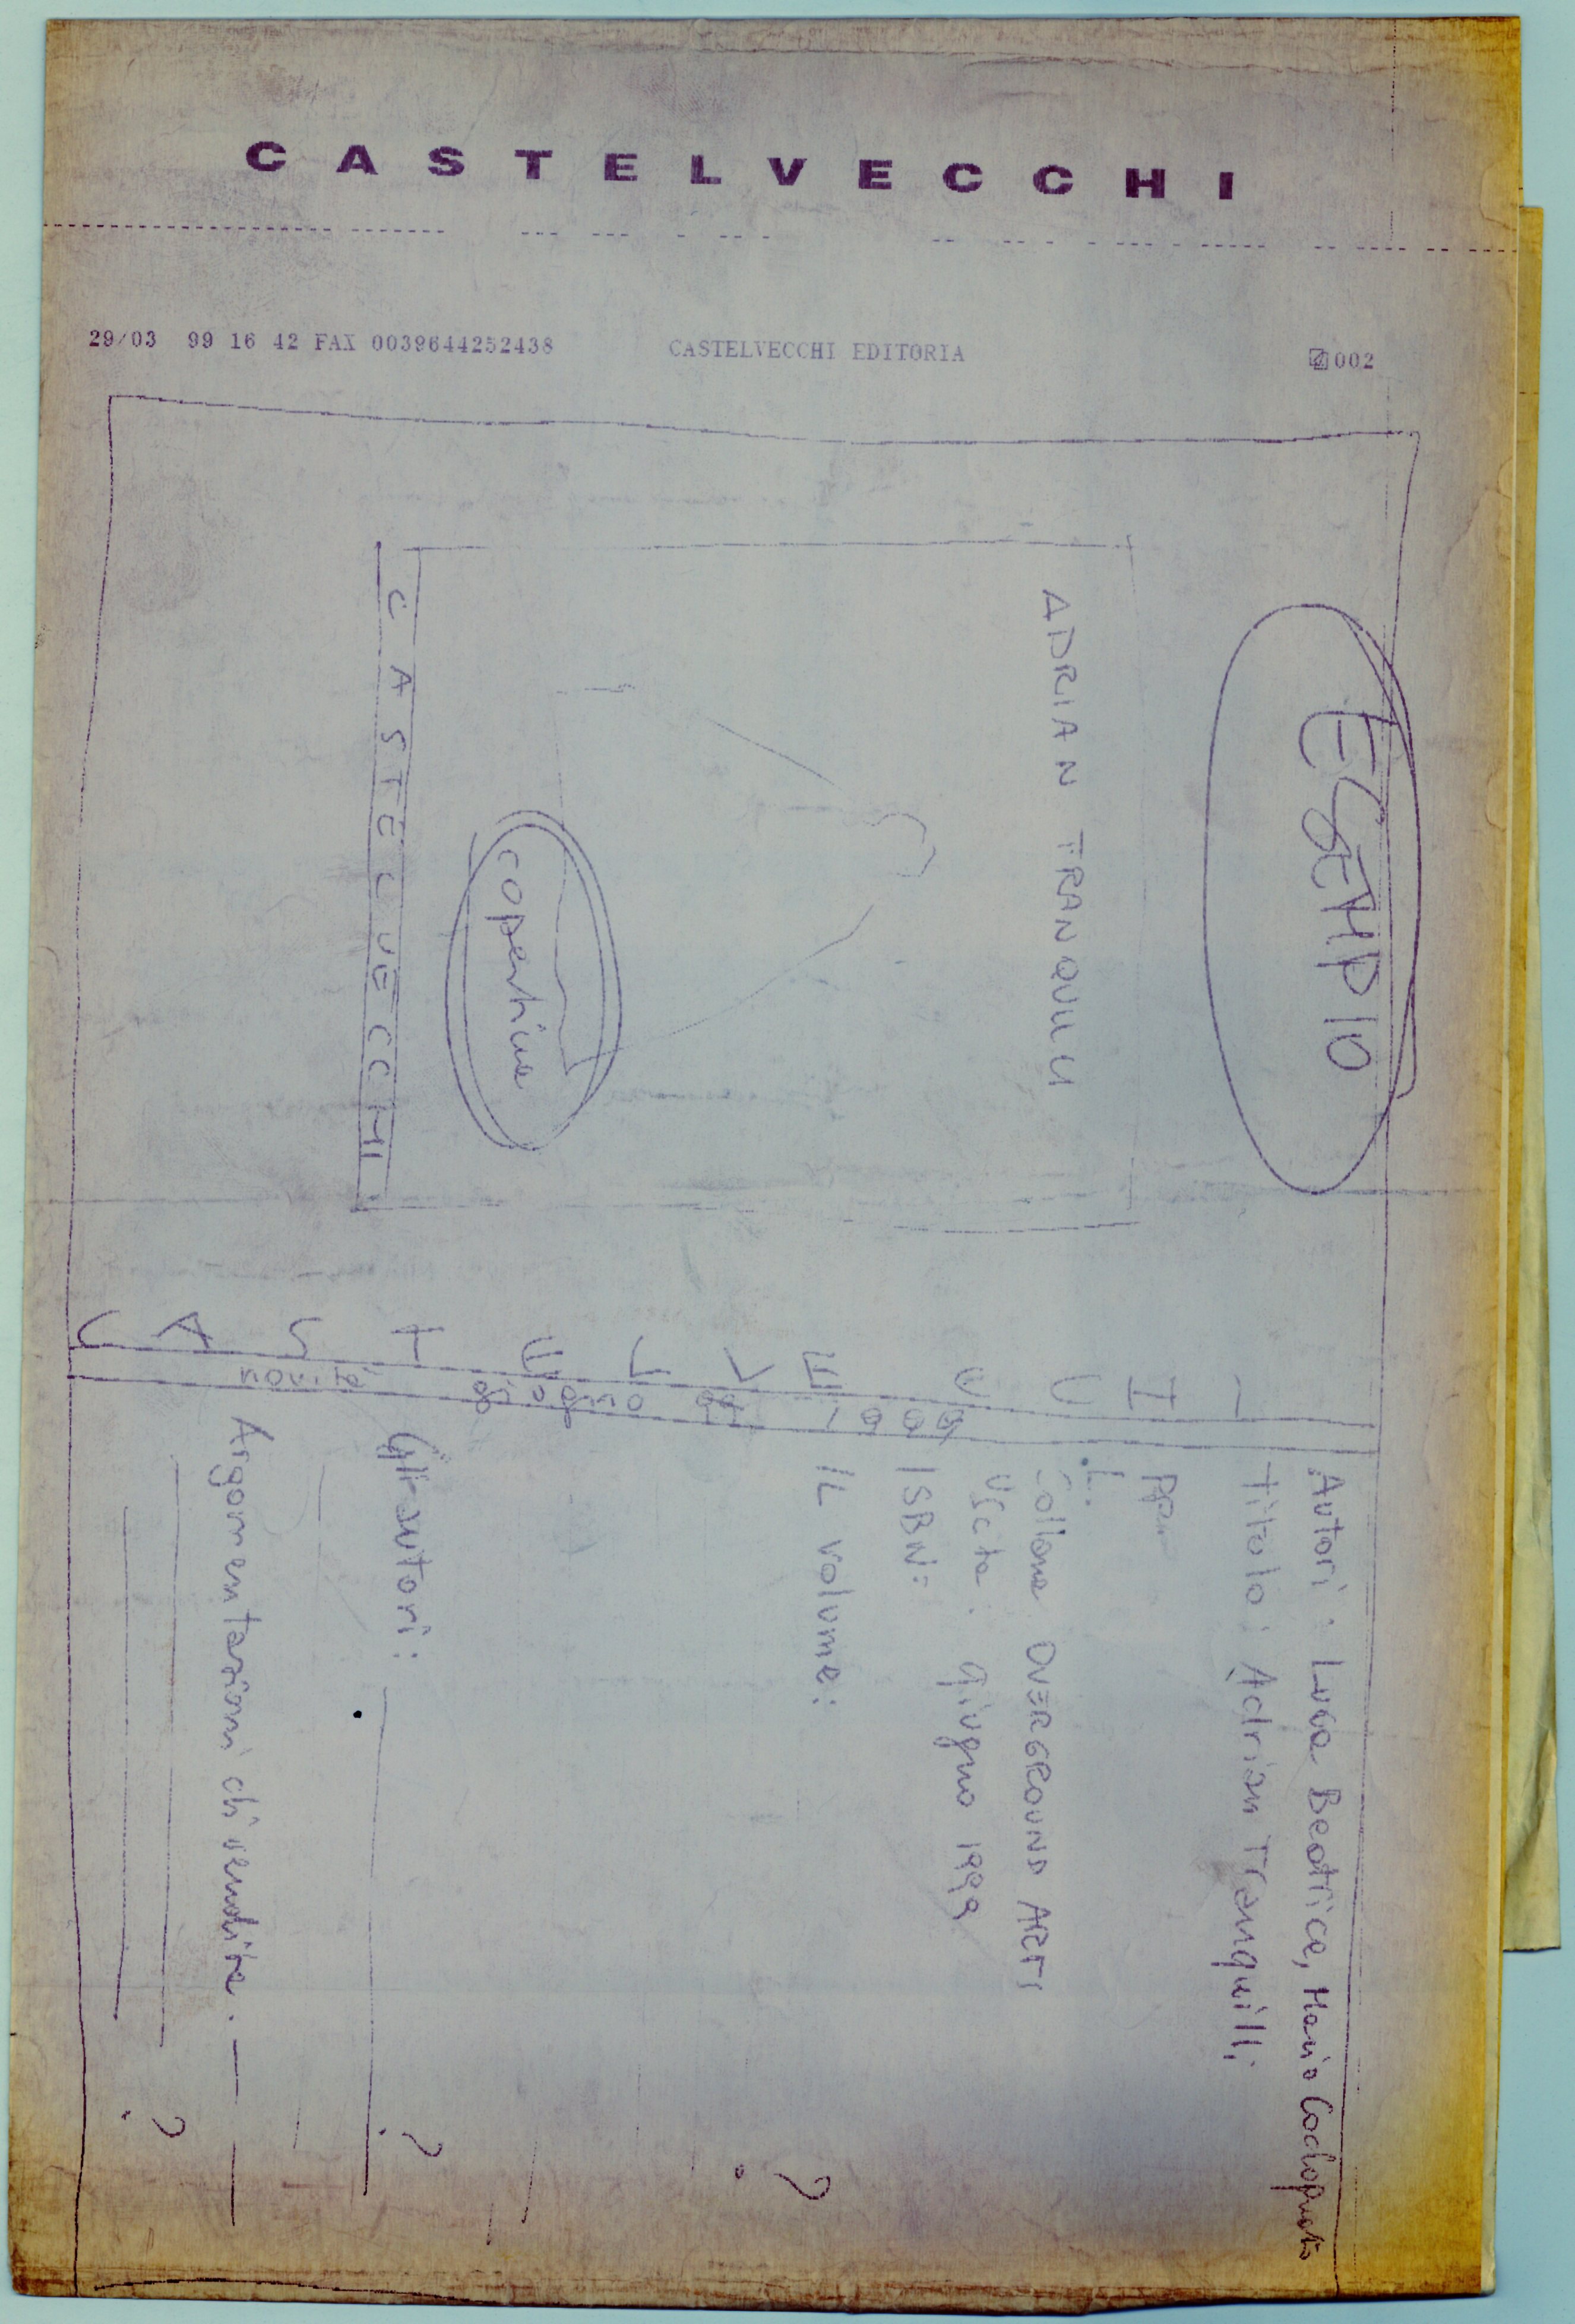 CASTELVECCHI
29/03 99 16 42 FAX 0039644252438 CASTELVECCHI EDITORIA 002
ESEMPIO
ADRIAN TRANQUILLI
copertina
CASTELVECCHI
CASTELVECCHI
novità giugno 99 1999
Autori: Luca Beatrice,
Titolo: Adrian Tranquilli
pp.
L.
Collana OVERGROUND ARTS
Uscita: giugno 1999
ISBN:
IL volume:
?
Gli autori:
?
Argomentazioni di vendita.
?